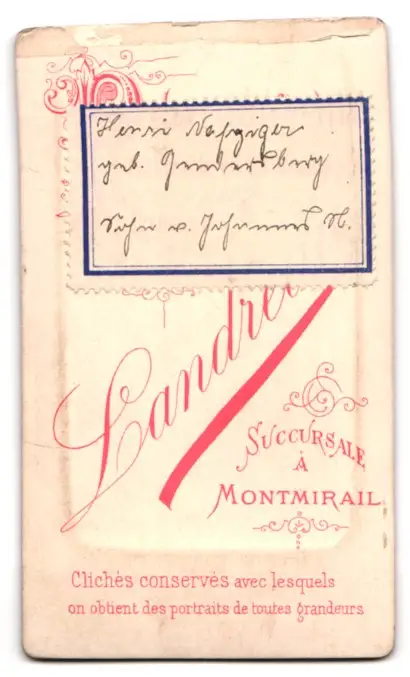 Henri Nafziger
geb. Gundersberg
Sohn v. Johannes N.
Landre
SUCCURSALE
À
MONTMIRAIL
Clichés conservés avec lesquels
on obtient des portraits de toutes grandeurs